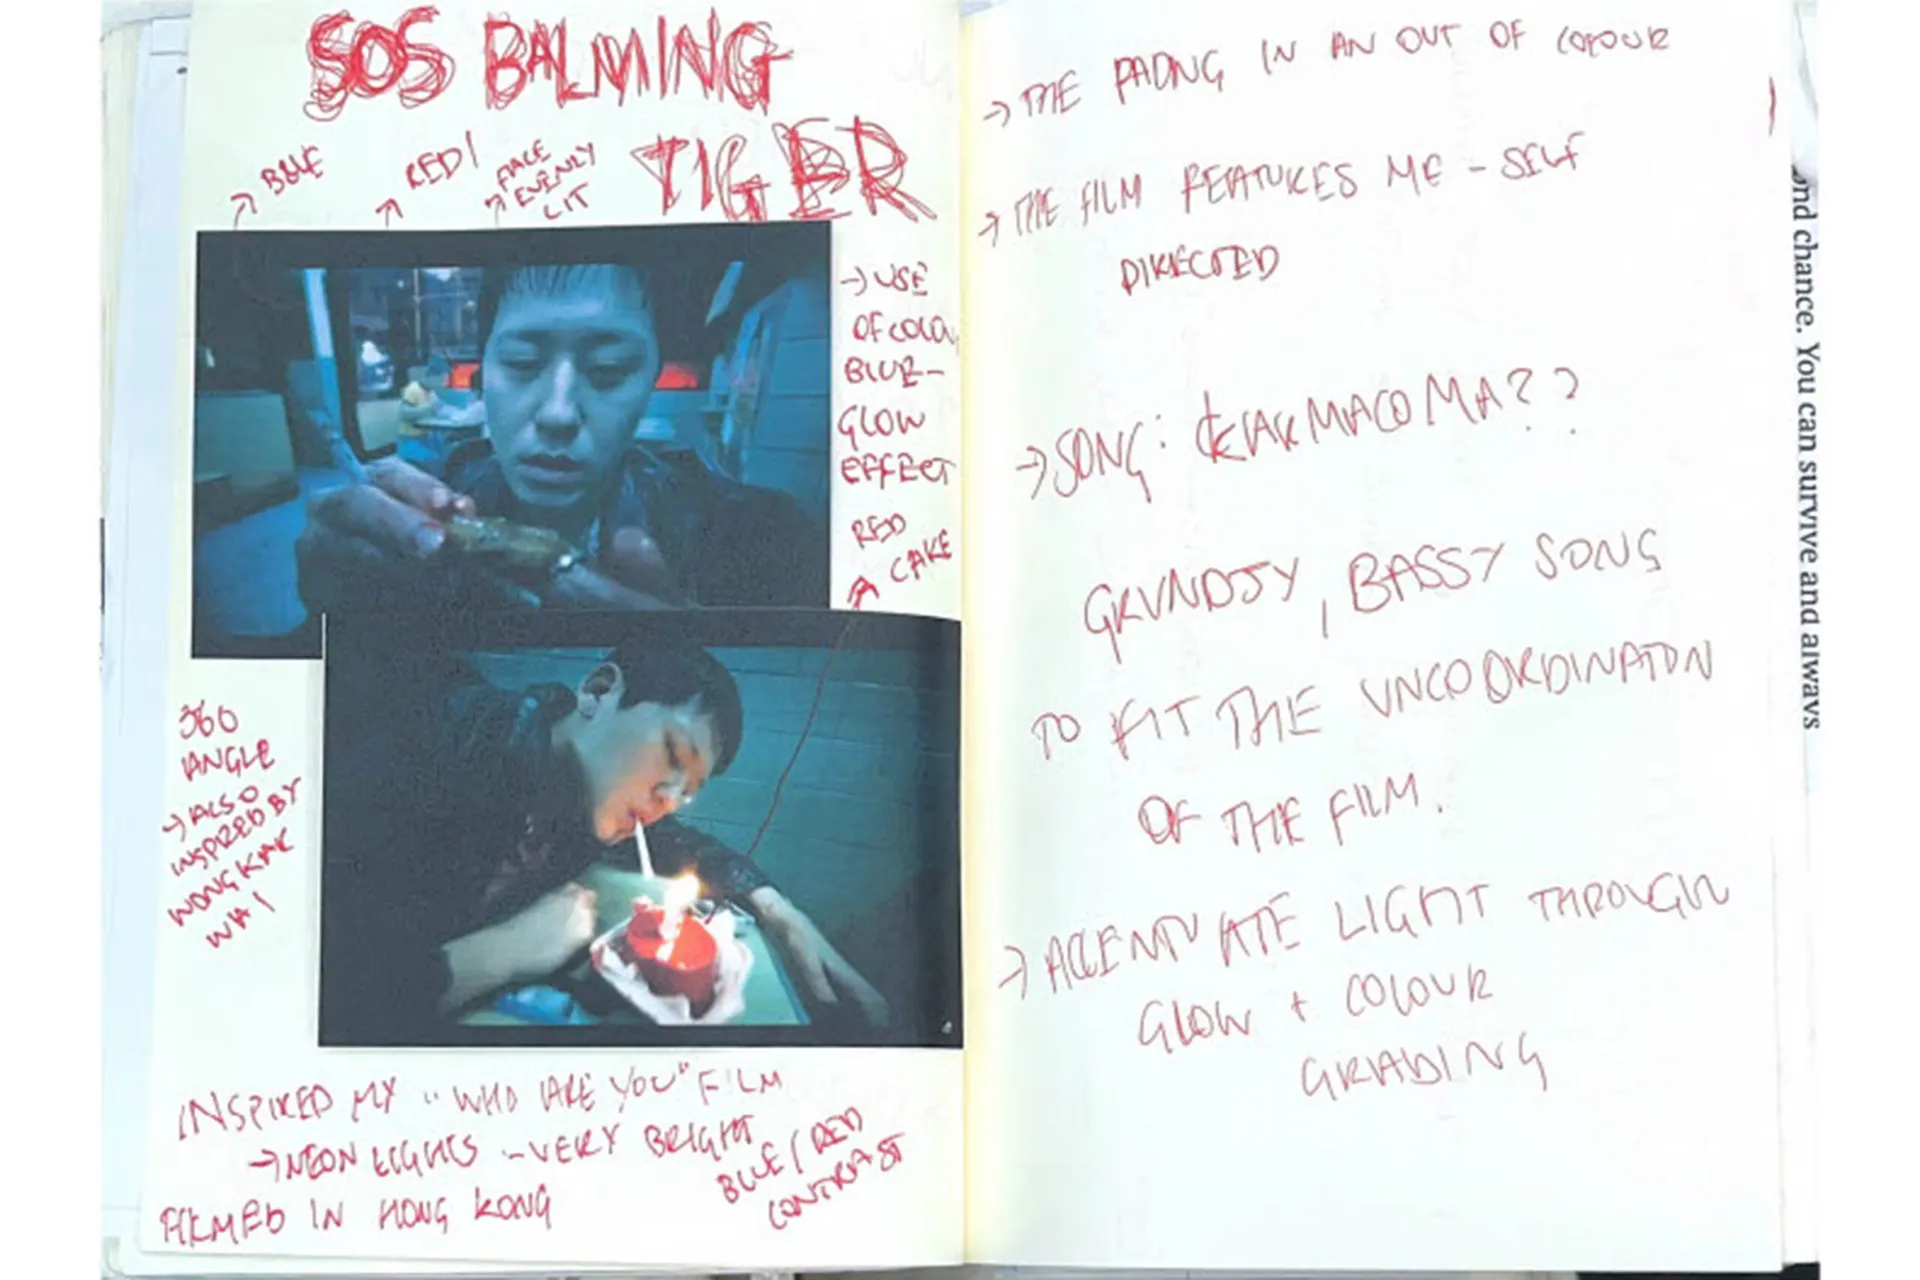 SOS BALMING
TIGER
→ BLUE
→ RED/
→ FACE
EVENLY
LIT
→ USE
OF COLOU
BLUR-
GLOW
EFFECT
RED
CAKE
360
ANGLE
→ ALSO
INSPIRED BY
WONG KAR
WAI
INSPIRED MY "WHO ARE YOU" FILM
→ NEON LIGHTS - VERY BRIGHT
FILMED IN HONG KONG
BLUE / RED
CONTRAST
→ THE FADING IN AN OUT OF COLOUR
→ THE FILM FEATURES ME - SELF
DIRECTED
→ SONG: KARMACOMA??
GRUNDJY, BASSY SONG
TO FIT THE UNCOORDINATION
OF THE FILM.
→ ACCENTUATE LIGHT THROUGH
GLOW + COLOUR
GRADING
nd chance. You can survive and always